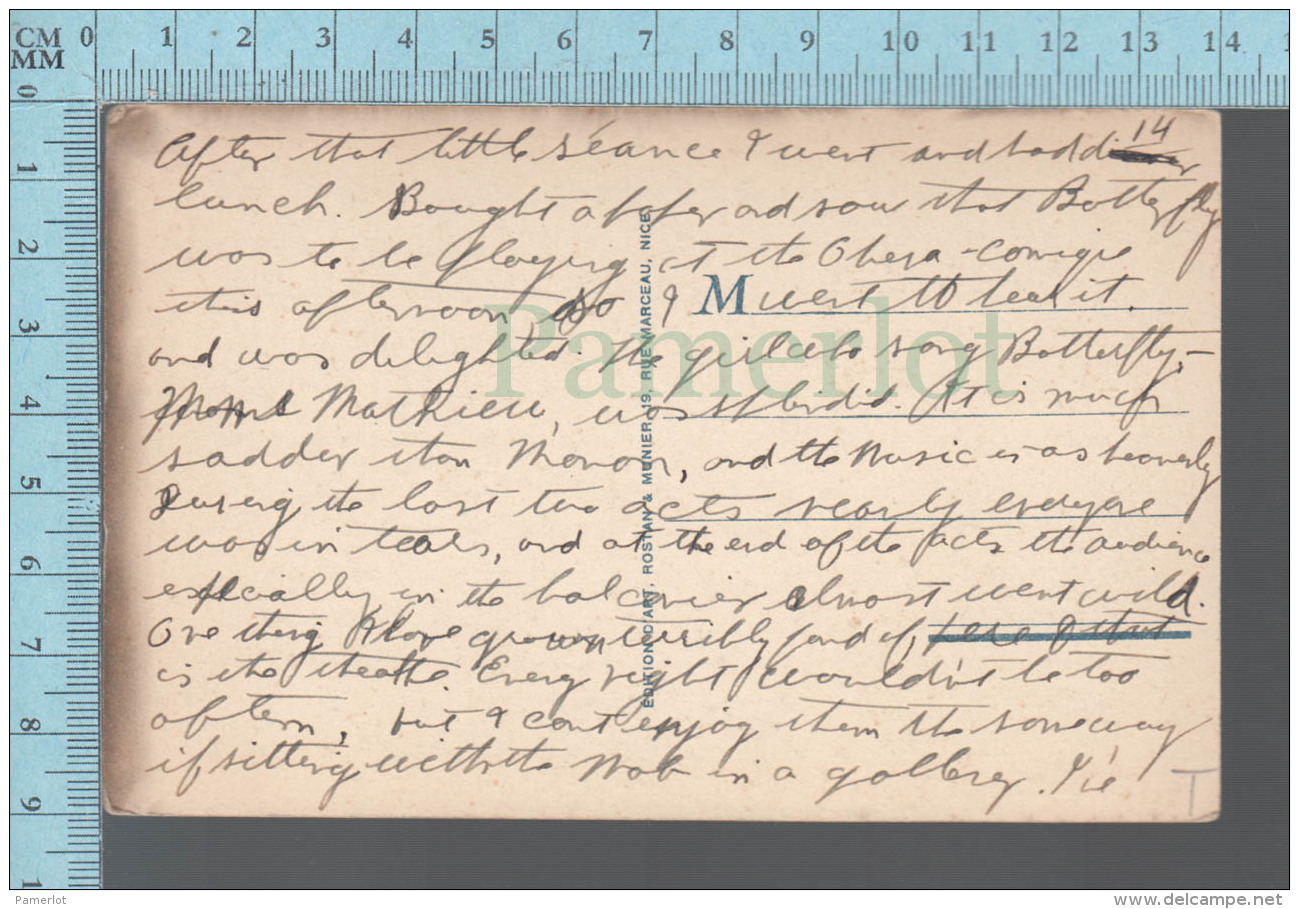 CM 0 1 2 3 4 5 6 7 8 9 10 11 12 13 14
MM
0 1 2 3 4 5 6 7 8 9 1
14
After that little séance I went and had dinner
lunch. Bought a paper and saw that Butterfly
was to be playing at the Opera-Comique
this afternoon, so I went to hear it.
M
and was delighted. The girl who sang Butterfly, -
Mathieu, was splendid. It is much
sadder than Manon, and the music is as heavenly
During the last two acts nearly everyone
was in tears, and at the end of the acts the audience
especially in the balconies almost went wild.
One thing I have grown terribly fond of, here in that
is the theatre. Every night wouldn't be too
often, but I can't enjoy them the same way
if sitting with the mob in a gallery. I've
T
EDITION D'ART, ROSTAN & MUNIER, 19, RUE MARCEAU, NICE
Pamerlot
Pamerlot
www.delcampe.net